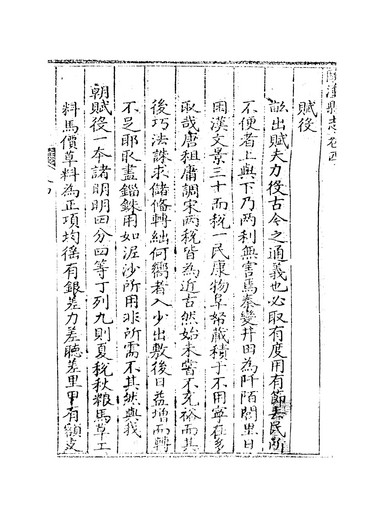 賦役
畝出賦夫力役古今之通義也必取有度用有節去民所
不便者上與下乃两利無害焉秦變井田為阡陌閭里日
困漢文景三十而税一民康物阜帑藏積于不用寧在多
取哉唐租庸調宋两税皆為近古然始未嘗不充裕而其
後巧法誅求儲偹轉絀何嚮者入少出敷後日益增而轉
不足耶取盡錙銖用如泥沙所用非所需不其然與我
朝賦役一本諸明明四分四等丁列九則夏税秋粮馬草工
料馬價草料為正項均徭有銀差力差聽差里甲有額支